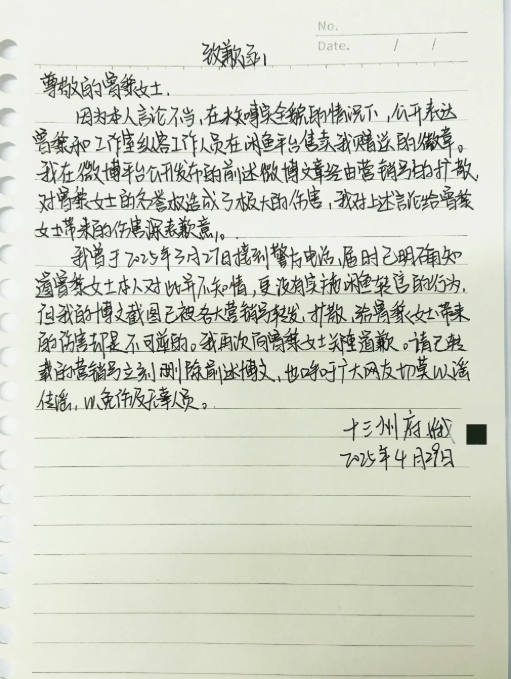 No.
Date. / /
致歉函
尊敬的曾黎女士.
因为本人言论不当,在未知嘚全貌的情况下,公开表达
曾黎和工作室纵容工作人员在闲鱼平台售卖我赠送的徽章。
我在微博平台公开发布的前述微博文章经由营销号的扩散,
对曾黎女士的名誉权造成了极大的伤害,我对上述言论给曾黎
女士带来的伤害深表歉意。
我曾于2025年3月27日接到警方电话,届时已明确知
道曾黎女士本人对此并不知情,更没有实施闲鱼转售的行为,
但我的博文截图已被各大营销号转发,扩散,给曾黎女士带来
的伤害却是不可逆的。我再次向曾黎女士郑重道歉。请已转
载的营销号立刻删除前述博文,也呼吁广大网友切莫以谣
传谣,以免伤及无辜人员。
十三州府
2025年4月29日